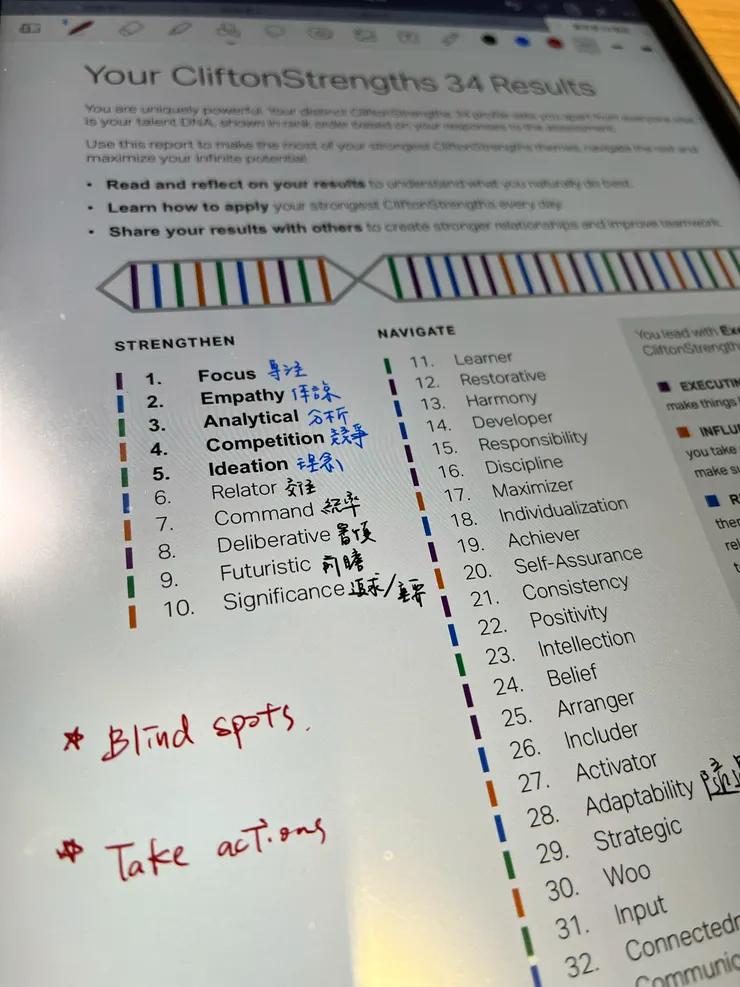 Your CliftonStrengths 34 Results
You are uniquely powerful. Your distinct CliftonStrengths 34 profile sets you apart from everyone else.
is your talent DNA, shown in rank order based on your responses to the assessment.
Use this report to make the most of your strongest CliftonStrengths themes, navigate the rest and
maximize your infinite potential:
• Read and reflect on your results to understand what you naturally do best.
• Learn how to apply your strongest CliftonStrengths every day.
• Share your results with others to create stronger relationships and improve teamwork.
STRENGTHEN
1. Focus 專注
2. Empathy 体諒
3. Analytical 分析
4. Competition 競爭
5. Ideation 理念
6. Relator 交往
7. Command 統率
8. Deliberative 審慎
9. Futuristic 前瞻
10. Significance 追求/重要
* Blind spots.
* Take actions
NAVIGATE
11. Learner
12. Restorative
13. Harmony
14. Developer
15. Responsibility
16. Discipline
17. Maximizer
18. Individualization
19. Achiever
20. Self-Assurance
21. Consistency
22. Positivity
23. Intellection
24. Belief
25. Arranger
26. Includer
27. Activator
28. Adaptability
29. Strategic
30. Woo
31. Input
32. Connectedn
Communic
You lead with Exe
CliftonStrength
EXECUTIN
make things
INFLU
you take
make su
R
then
rel
t